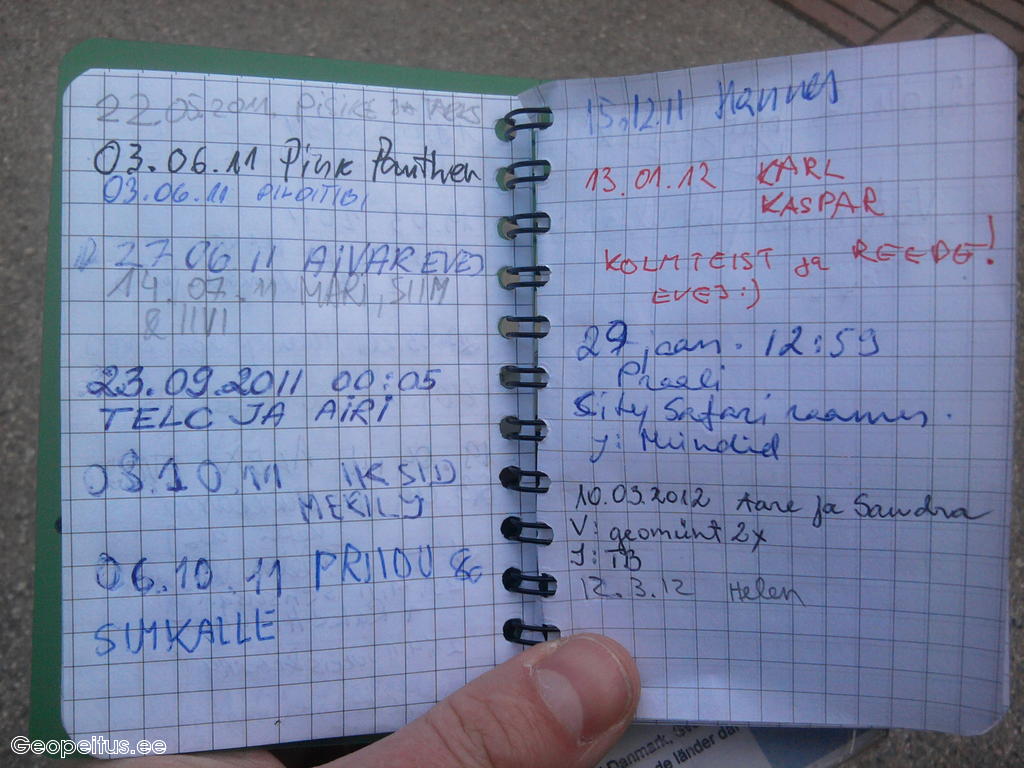 22.05.2011 PISIKE JA
03.06.11 Pink Panther
03.06.11
27 06 11 AIVAR EVEJ
14. 07. 11 MARI, SIIM
& IIVI
23.09.2011 00:05
TELC JA AIRI
03.10.11 IIKSID
MEKILJ
06.10.11 PRIIDU &
SIIMKALLE
15.12.11 Hannes
13.01.12 KARL
KASPAR
KOLMTEIST ja REEDE!
EVEJ :)
29 jaan. 12:59
Sity Safari raames.
j: Mündid
10.03.2012 Aare ja Sandra
V: geomünt 2x
J: TB
12.3.12 Helen
Geopeitus.ee
Danmark,
de länder